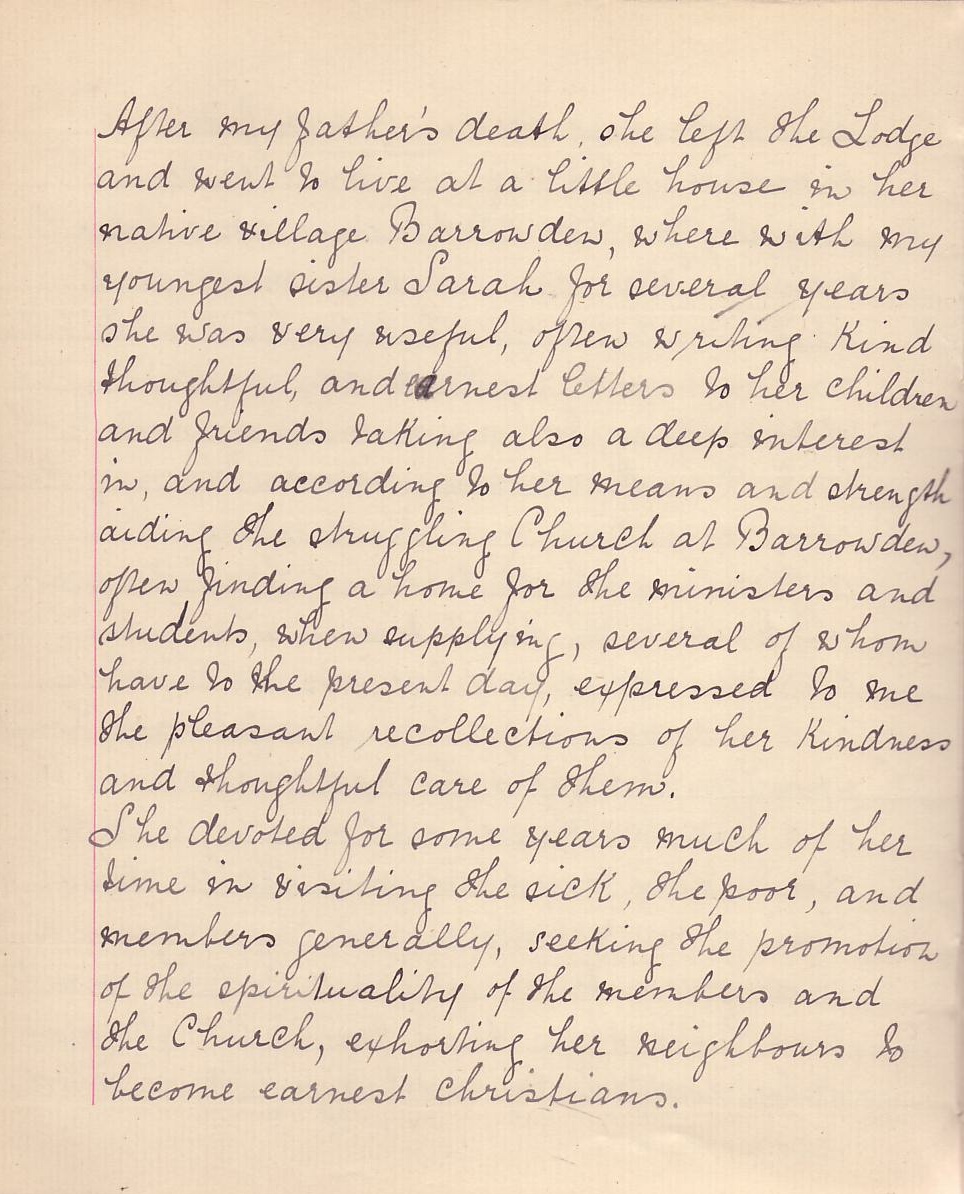 After my father's death, she left the Lodge
and went to live at a little house in her
native village Barrowden, where with my
youngest sister Sarah for several years
she was very useful, often writing kind
thoughtful, and earnest letters to her children
and friends taking also a deep interest
in, and according to her means and strength
aiding the struggling Church at Barrowden,
often finding a home for the ministers and
students, when supplying, several of whom
have to the present day, expressed to me
the pleasant recollections of her kindness
and thoughtful care of them.
She devoted for some years much of her
time in visiting the sick, the poor, and
members generally, seeking the promotion
of the spirituality of the members and
the Church, exhorting her neighbours to
become earnest christians.